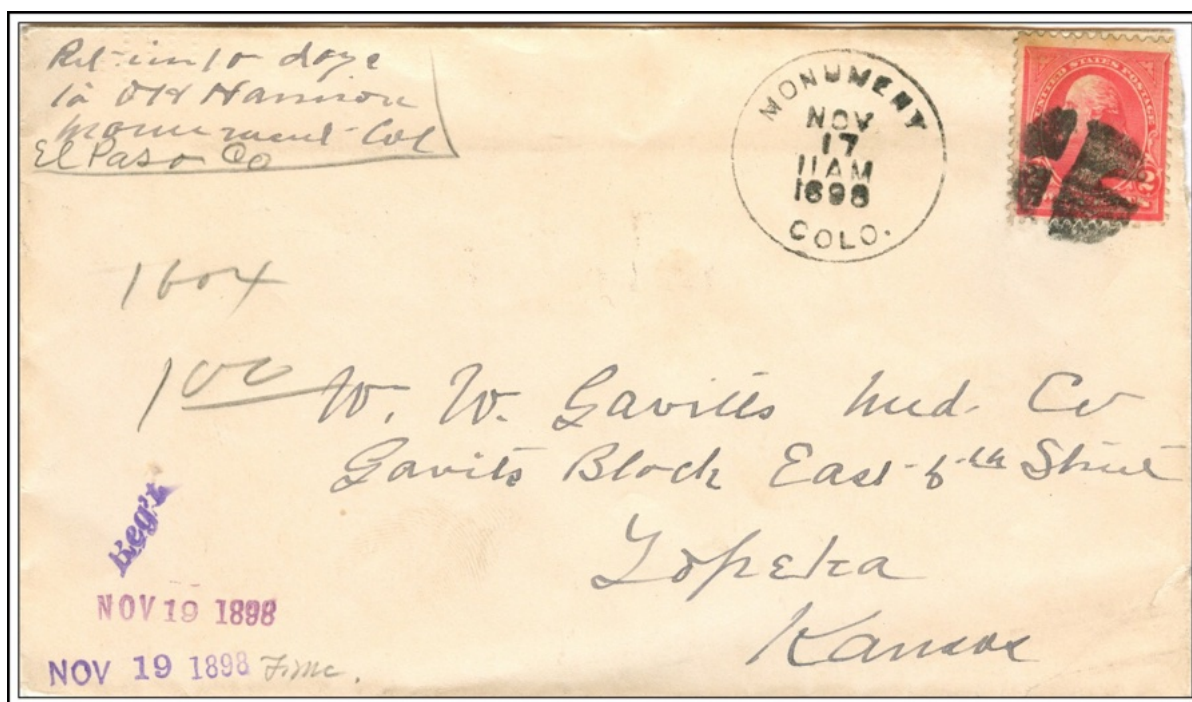 Ret in 10 days
to OH Hannon
Monument Col
El Paso Co
MONUMENT
NOV
17
11 AM
1898
COLO.
UNITED STATES POSTAGE
1 box
1 00
W. W. Gavitts Med. Co
Gavits Block East 6th Street
Topeka
Kansas
Reg't
NOV 19 1898
NOV 19 1898